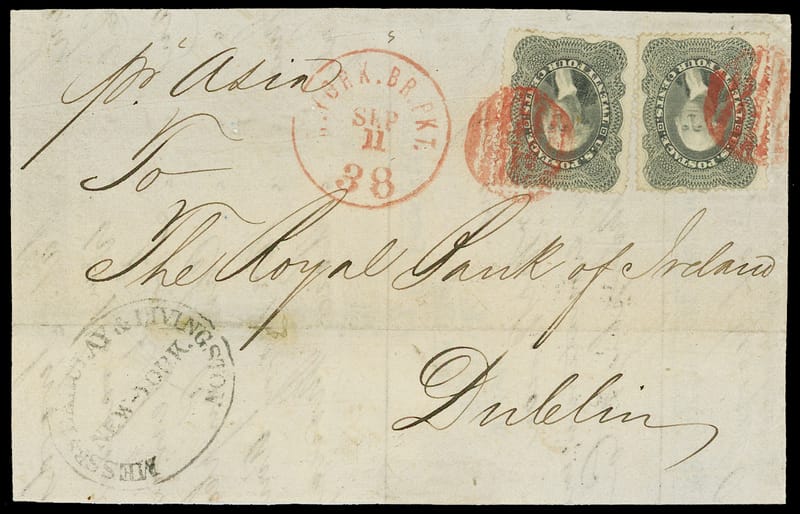 pr Asia
N. YORK. BR. PKT.
SEP
11
38
U.S. POSTAGE
TWENTY FOUR CENTS
U.S. POSTAGE
TWENTY FOUR CENTS
To
The Royal Bank of Ireland
Dublin
MESSRS BARCLAY & LIVINGSTON
NEW-YORK.